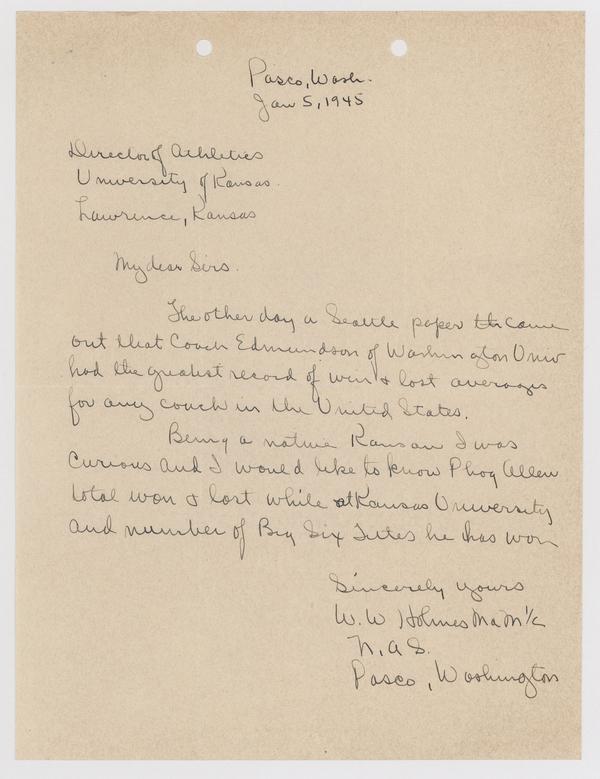 Pasco, Wash.
Jan 5, 1945
Director of Athletics
University of Kansas.
Lawrence, Kansas
My dear Sirs.
The other day a Seattle paper th came
out that Coach Edmundson of Washington Univ
had the greatest record of win & lost averages
for any coach in the United States.
Being a native Kansan I was
curious and I would like to know Phog Allen
total won & lost while at Kansas University
and number of Big Six Titles he has won
Sincerely yours
W. W Holmes MaM 1/c
N. A S.
Pasco, Washington